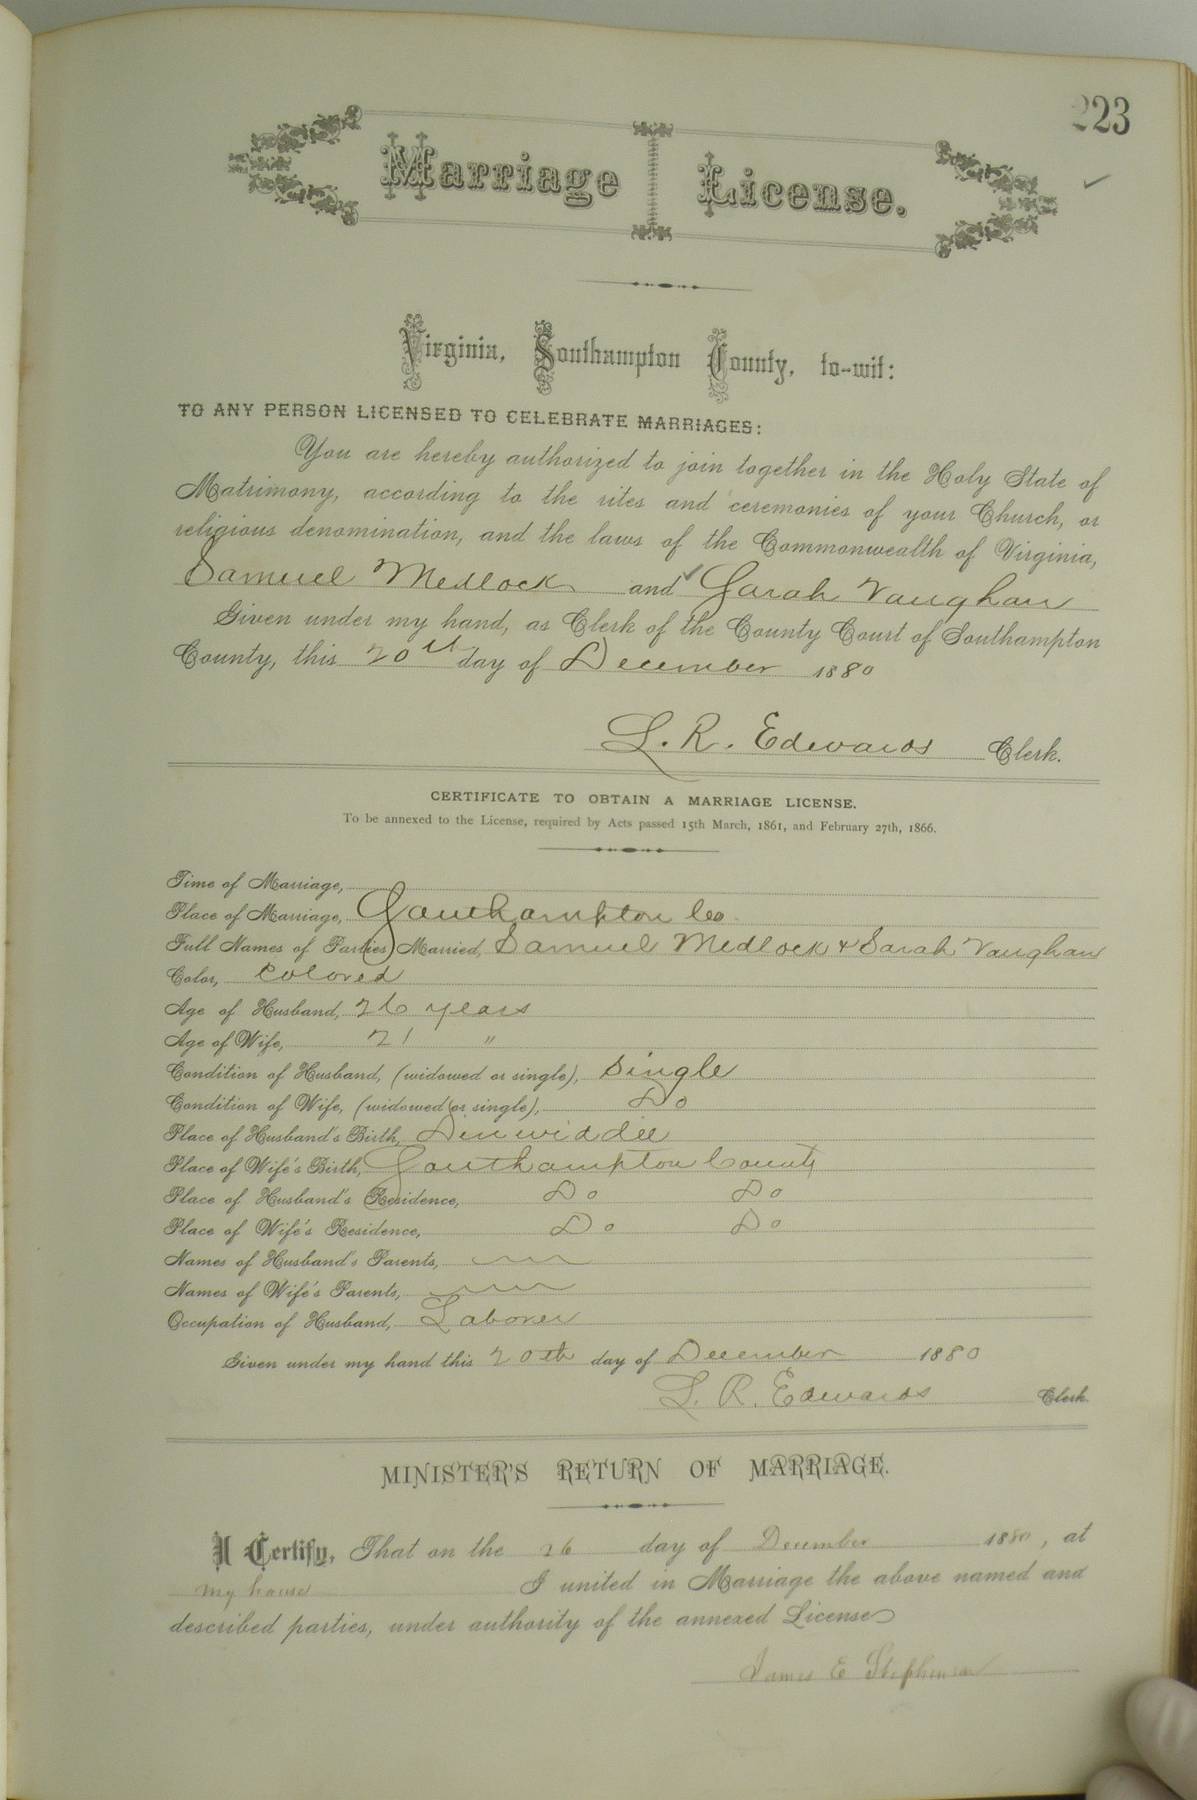 223
Marriage License.
Virginia, Southampton County, to-wit:
TO ANY PERSON LICENSED TO CELEBRATE MARRIAGES:
You are hereby authorized to join together in the Holy State of
Matrimony, according to the rites and ceremonies of your Church, or
religious denomination, and the laws of the Commonwealth of Virginia,
Samuel Medlock and Sarah Vaughan
Given under my hand, as Clerk of the County Court of Southampton
County, this 20th day of December 1880
L. R. Edwards Clerk.
CERTIFICATE TO OBTAIN A MARRIAGE LICENSE.
To be annexed to the License, required by Acts passed 15th March, 1861, and February 27th, 1866.
Time of Marriage,
Place of Marriage, Southampton Co.
Full Names of Parties Married, Samuel Medlock & Sarah Vaughan
Color, Colored
Age of Husband, 26 years
Age of Wife, 21 "
Condition of Husband, (widowed or single), Single
Condition of Wife, (widowed or single), Do
Place of Husband's Birth, Dinwiddie
Place of Wife's Birth, Southampton County
Place of Husband's Residence, Do Do
Place of Wife's Residence, Do Do
Names of Husband's Parents,
Names of Wife's Parents,
Occupation of Husband, Laborer
Given under my hand this 20th day of December 1880
L. R. Edwards Clerk.
MINISTER'S RETURN OF MARRIAGE.
I Certify, That on the 26 day of December 1880, at
my house I united in Marriage the above named and
described parties, under authority of the annexed License
James E Stephenson